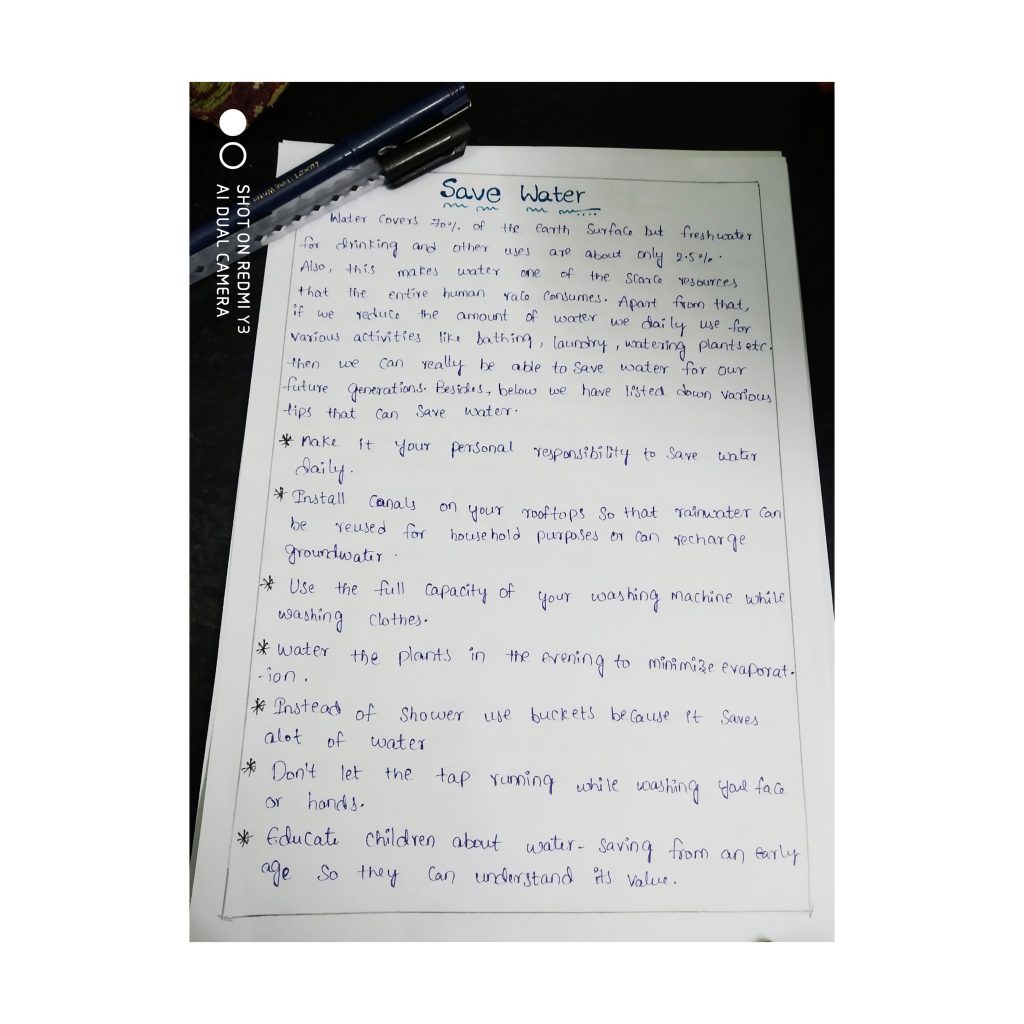 Save Water
Water covers 70% of the Earth Surface but freshwater
for drinking and other uses are about only 2.5%.
Also, this makes water one of the scarce resources
that the entire human race consumes. Apart from that,
if we reduce the amount of water we daily use for
various activities like bathing, laundry, watering plants etc.
then we can really be able to save water for our
future generations. Besides, below we have listed down various
tips that can save water.
* Make it your personal responsibility to save water
daily.
* Install canals on your rooftops so that rainwater can
be reused for household purposes or can recharge
groundwater.
* Use the full capacity of your washing machine while
washing clothes.
* Water the plants in the evening to minimize evaporat-
-ion.
* Instead of shower use buckets because it saves
alot of water
* Don't let the tap running while washing your face
or hands.
* Educate children about water-saving from an early
age so they can understand its value.
SHOT ON REDMI Y3
AI DUAL CAMERA